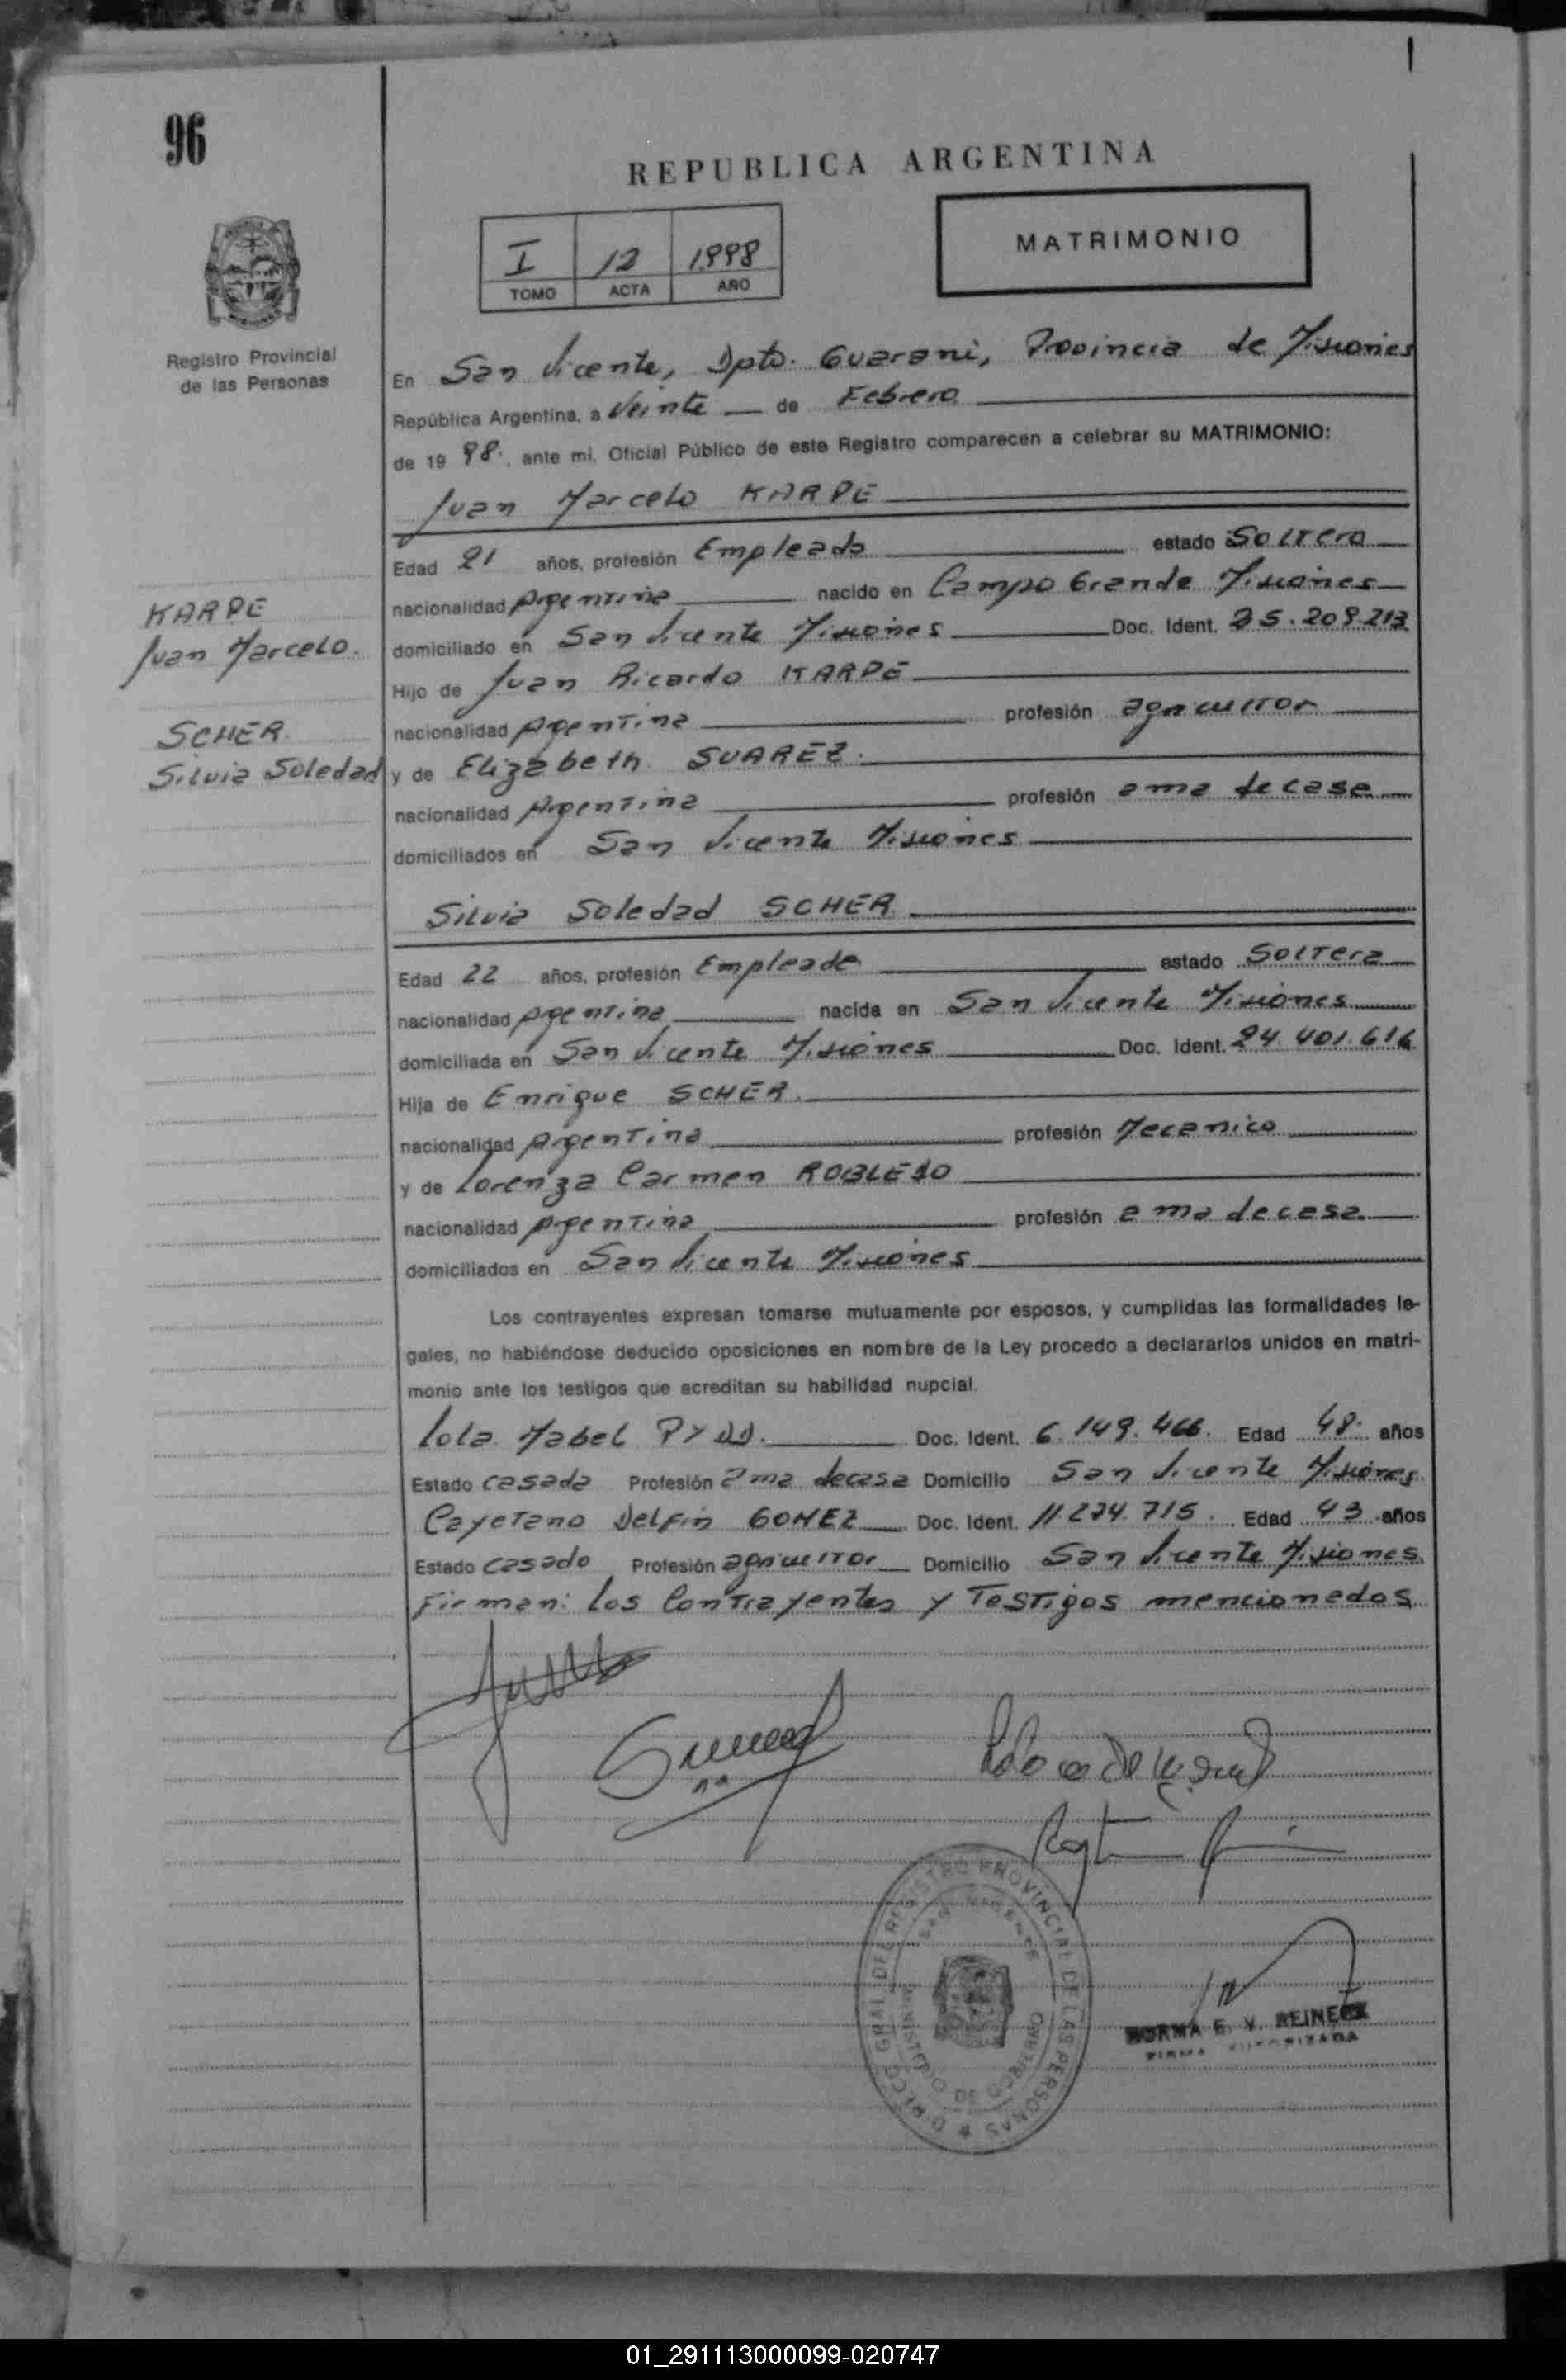 96
REPUBLICA ARGENTINA
I 12 1998
TOMO ACTA AÑO
MATRIMONIO
Registro Provincial
de las Personas
En San Vicente, Dpto. Guarani, Provincia de Misiones
República Argentina, a Veinte de Febrero
de 19 98., ante mi, Oficial Público de este Registro comparecen a celebrar su MATRIMONIO:
Juan Marcelo KARPE
Edad 21 años, profesión Empleado estado Soltero
nacionalidad Argentina nacido en Campo Grande Misiones
domiciliado en San Vicente Misiones Doc. Ident. 25.209.213
Hijo de Juan Ricardo KARPE
nacionalidad Argentina profesión agricultor
y de Elizabeth SUAREZ.
nacionalidad Argentina profesión ama de casa
domiciliados en San Vicente Misiones
KARPE
Juan Marcelo.
SCHER
Silvia Soledad
Silvia Soledad SCHER
Edad 22 años, profesión Empleada estado Soltera
nacionalidad Argentina nacida en San Vicente Misiones
domiciliada en San Vicente Misiones Doc. Ident. 24.401.616
Hija de Enrique SCHER.
nacionalidad Argentina profesión Mecanico
y de Lorenza Carmen ROBLEDO
nacionalidad Argentina profesión ama de casa
domiciliados en San Vicente Misiones
Los contrayentes expresan tomarse mutuamente por esposos, y cumplidas las formalidades le-
gales, no habiéndose deducido oposiciones en nombre de la Ley procedo a declararlos unidos en matri-
monio ante los testigos que acreditan su habilidad nupcial.
Lola Mabel Doc. Ident. 6.149.466. Edad 48. años
Estado casada Profesión ama de casa Domicilio San Vicente Misiones
Cayetano Delfin GOMEZ Doc. Ident. 11.274.715. Edad 43 años
Estado casado Profesión agricultor Domicilio San Vicente Misiones.
Firman: los Contrayentes y Testigos mencionados
DIRECC. GRAL. DEL REGISTRO PROVINCIAL DE LAS PERSONAS
SAN VICENTE
MINISTERIO DE GOBIERNO
NORMA E. V. REINECK
FIRMA AUTORIZADA
01_291113000099-020747